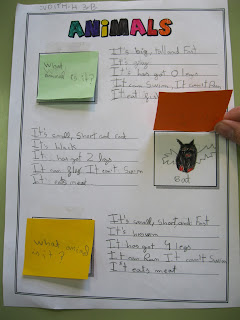 ANIMALS
What animal is it?
It's big, tall and Fat
It's gray
It's has got 0 legs
It can Swim. It can't Run
It eat
It's small, short and
It's black
It has got 2 legs
It can fly It can't Swim
It eats meat
Bat
What animal is it?
It's small, short and Fat
It's brown
It has got 4 legs
It can Run It can't Swim
It eats meat